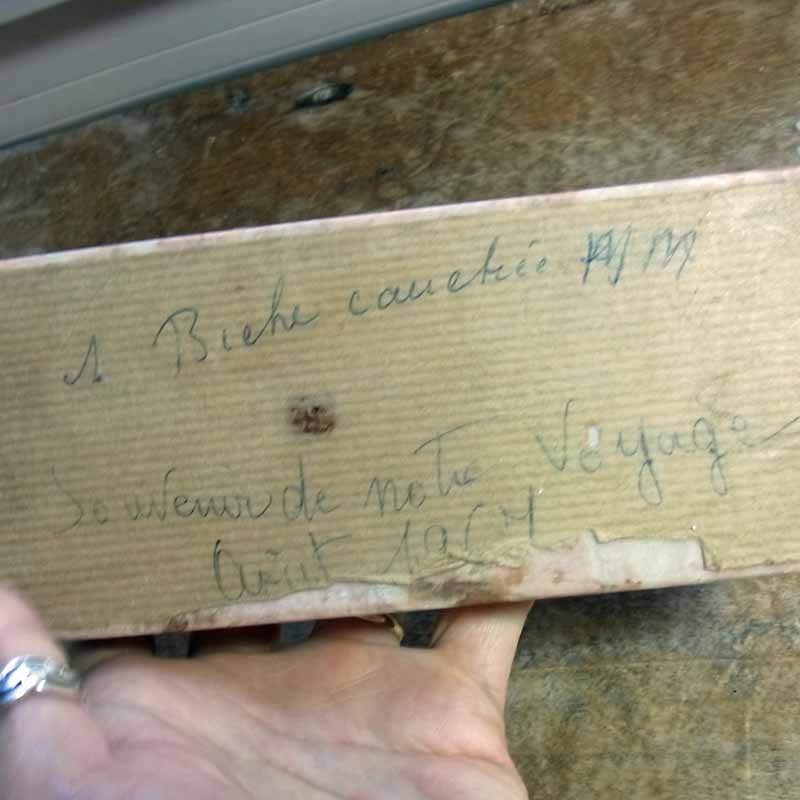 1 Biche couchée M
Souvenir de notre Voyage
Août 1967